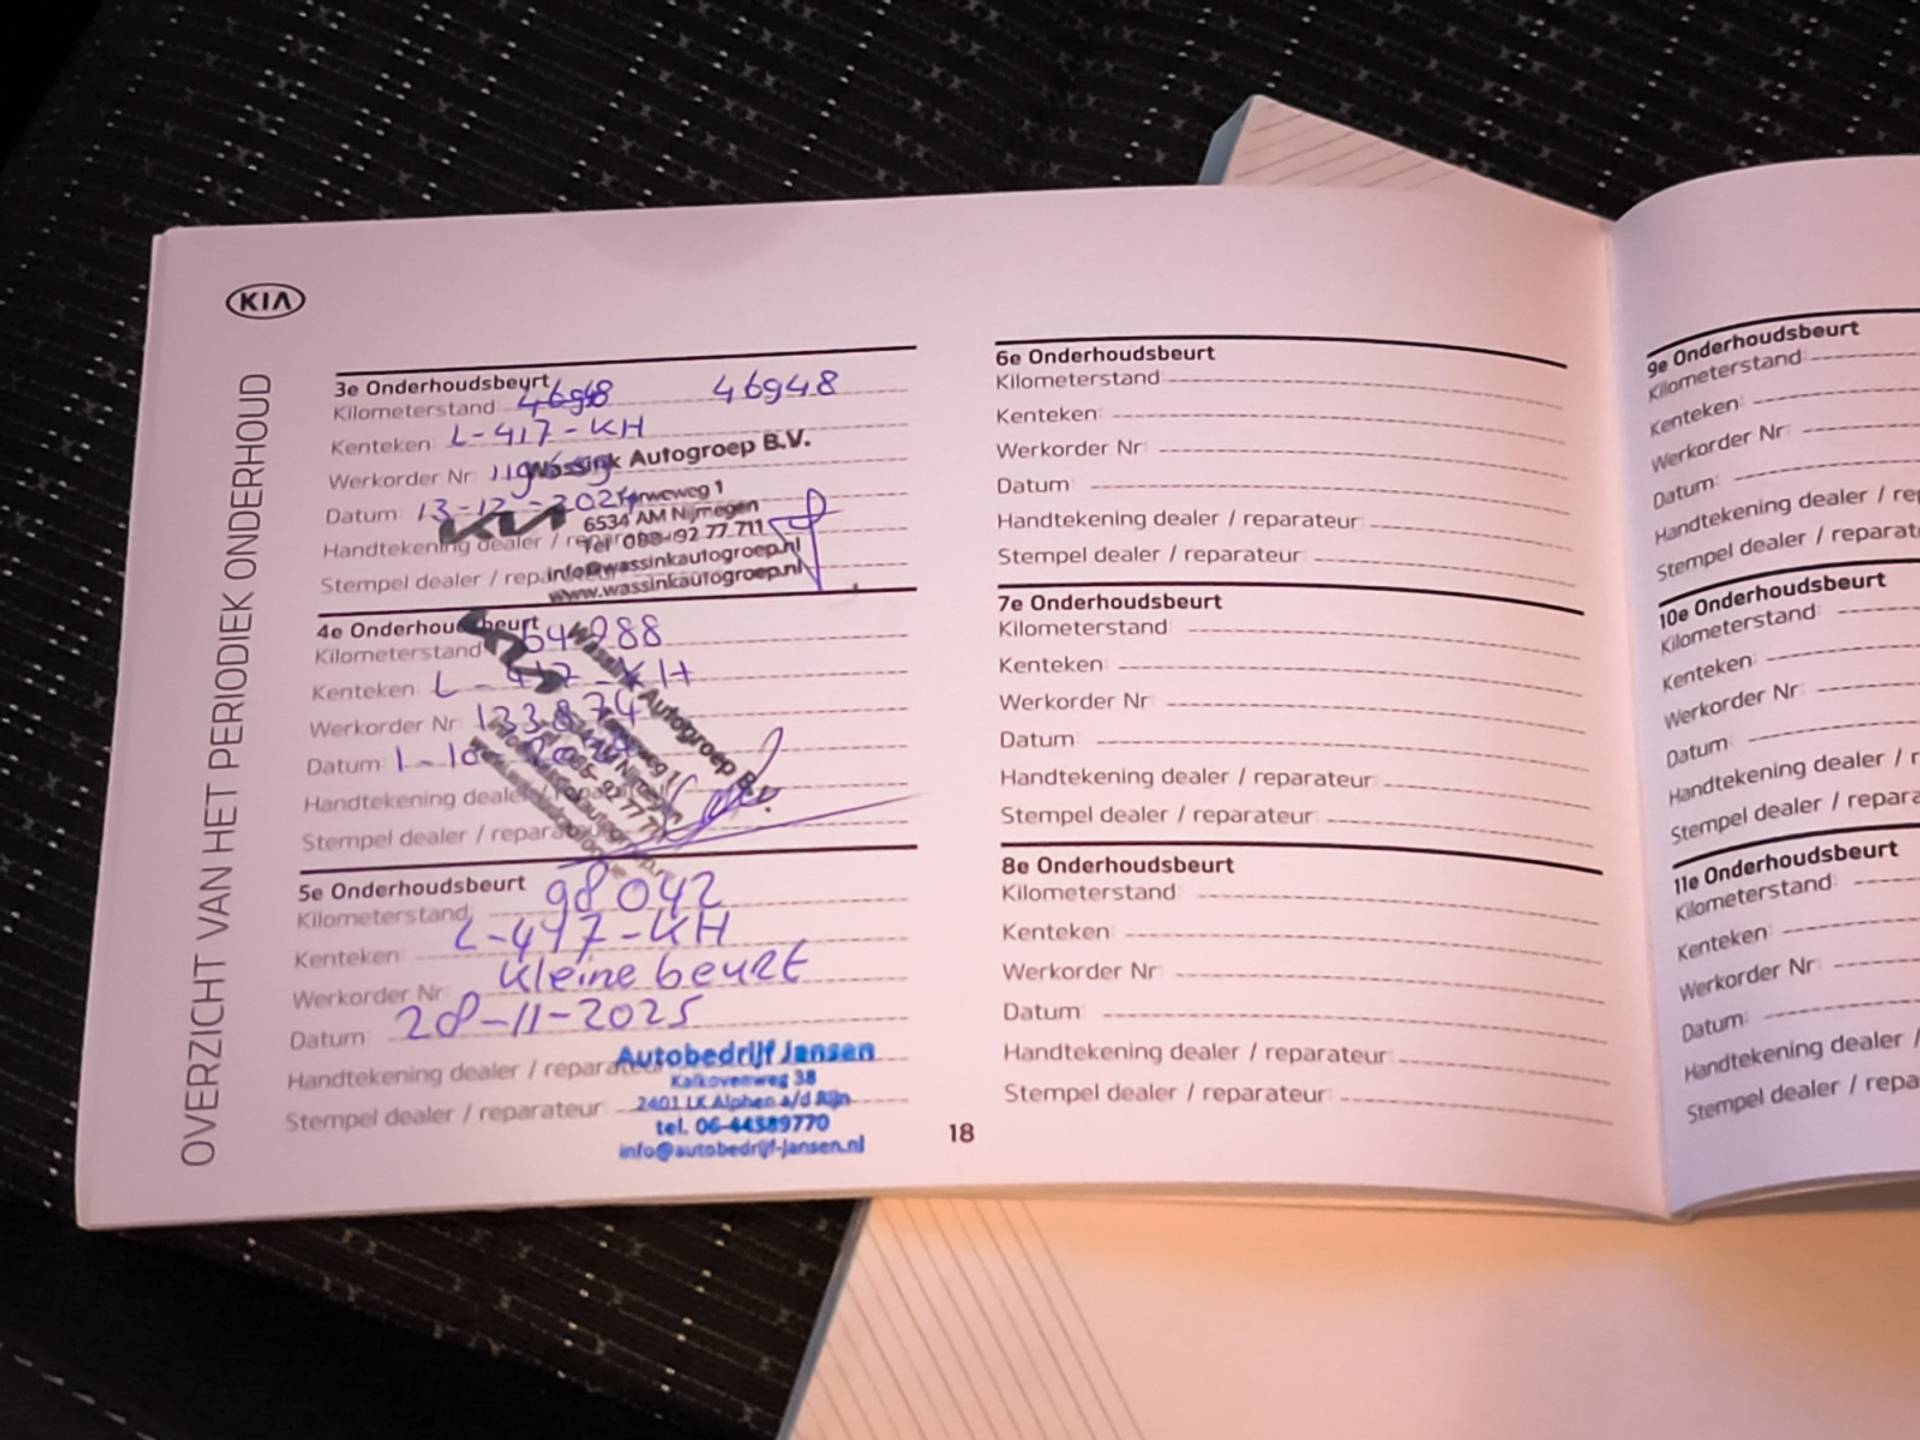 KIA
OVERZICHT VAN HET PERIODIEK ONDERHOUD
3e Onderhoudsbeurt
Kilometerstand: 46948 46948
Kenteken: L-417-KH
Werkorder Nr:
Wassink Autogroep B.V.
Datum: 13-12-2021
KIA
6534 AM Nijmegen
Handtekening dealer /
Tel 088-92 77 711
Stempel dealer /
info@wassinkautogroep.nl
www.wassinkautogroep.nl
4e Onderhoudsbeurt
Kilometerstand 64988
Kenteken: L-417-KH
Werkorder Nr: 133874
Datum: 1-10-
Wassink Autogroep B.V.
Handtekening dealer /
Stempel dealer /
5e Onderhoudsbeurt
Kilometerstand: 98042
Kenteken: L-417-KH
Werkorder Nr: Kleine beurt
Datum: 28-11-2025
Handtekening dealer / reparateur
Autobedrijf Jansen
Kalkovenweg 38
Stempel dealer / reparateur:
2401 LK Alphen a/d Rijn
tel. 06-44389770
info@autobedrijf-jansen.nl
6e Onderhoudsbeurt
Kilometerstand:
Kenteken:
Werkorder Nr:
Datum:
Handtekening dealer / reparateur:
Stempel dealer / reparateur:
7e Onderhoudsbeurt
Kilometerstand:
Kenteken:
Werkorder Nr:
Datum:
Handtekening dealer / reparateur:
Stempel dealer / reparateur:
8e Onderhoudsbeurt
Kilometerstand:
Kenteken:
Werkorder Nr:
Datum:
Handtekening dealer / reparateur:
Stempel dealer / reparateur:
18
9e Onderhoudsbeurt
Kilometerstand:
Kenteken:
Werkorder Nr:
Datum:
Handtekening dealer / re
Stempel dealer / reparat
10e Onderhoudsbeurt
Kilometerstand:
Kenteken:
Werkorder Nr:
Datum:
Handtekening dealer / r
Stempel dealer / repara
11e Onderhoudsbeurt
Kilometerstand:
Kenteken:
Werkorder Nr:
Datum:
Handtekening dealer /
Stempel dealer / repa